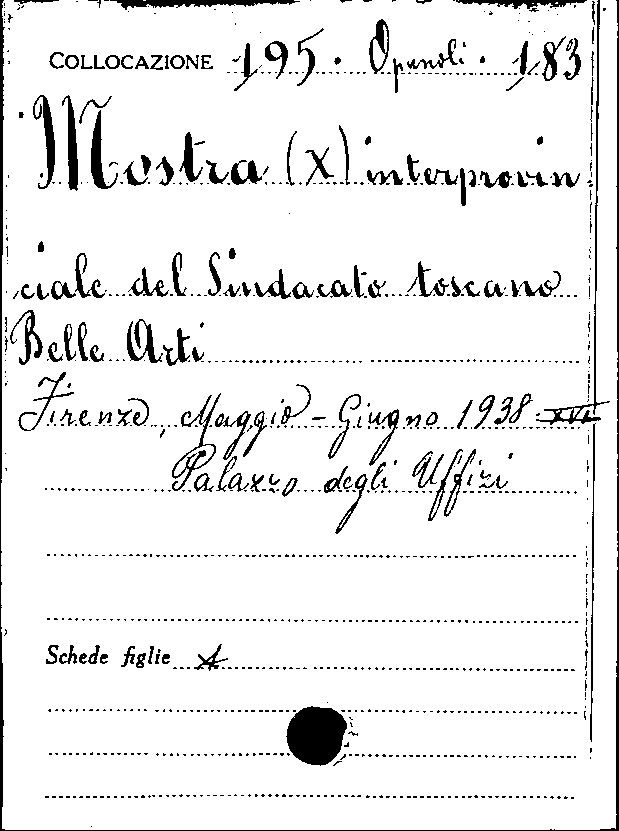 COLLOCAZIONE 195. Opuscoli. 183
Mostra (X) interprovin
ciale del Sindacato toscano
Belle Arti
Firenze, Maggio - Giugno 1938 - XVI
Palazzo degli Uffizi
Schede figlie